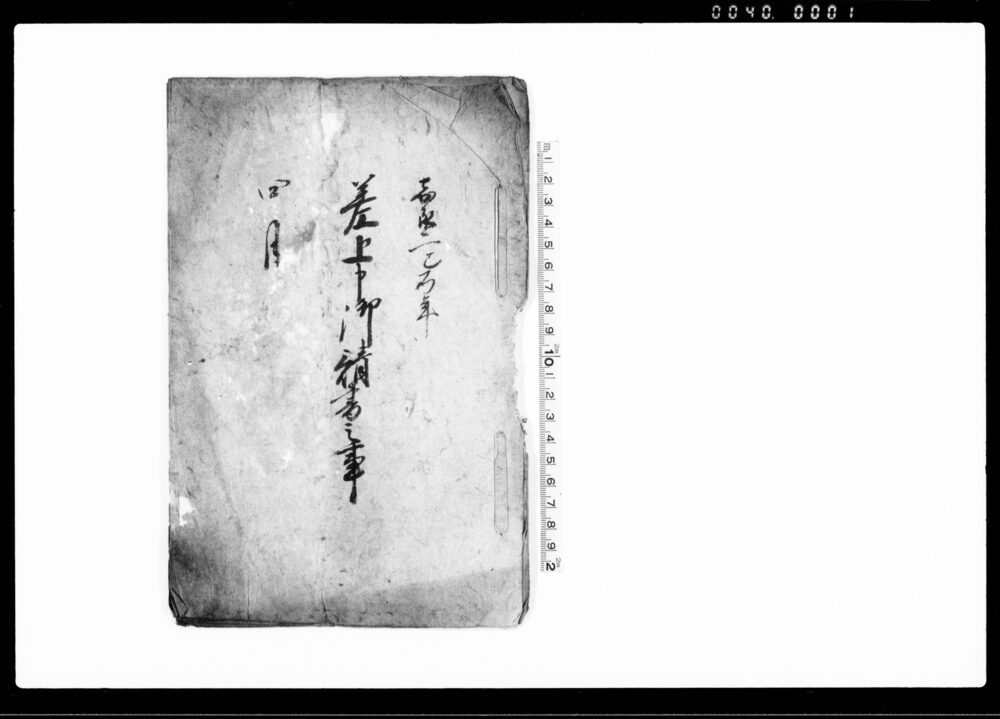 0040. 0001
嘉永三戌年
差上申御請書之事
四月
m 1 2 3 4 5 6 7 8 9 10 1 2 3 4 5 6 7 8 9 2